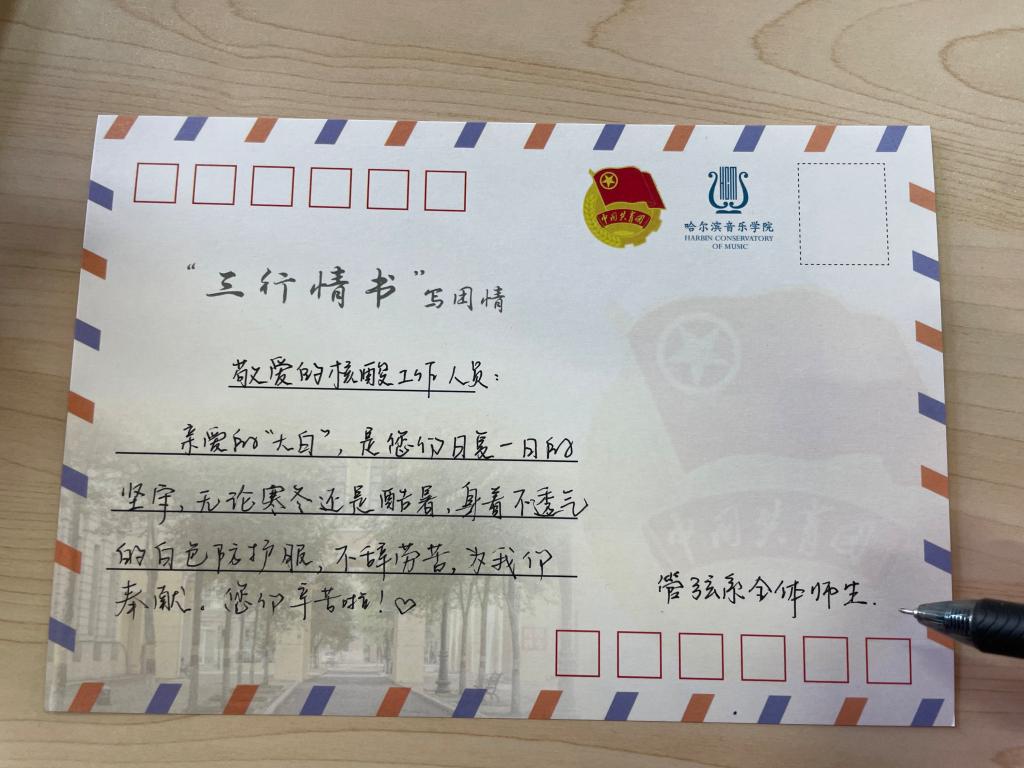 中国共青团
HCM
哈尔滨音乐学院
HARBIN CONSERVATORY
OF MUSIC
“三行情书”写团情
敬爱的核酸工作人员：
亲爱的“大白”，是您们日复一日的
坚守，无论寒冬还是酷暑，身着不透气
的白色防护服，不辞劳苦，为我们
奉献。您们辛苦啦！♡
中国共青团
管弦系全体师生.